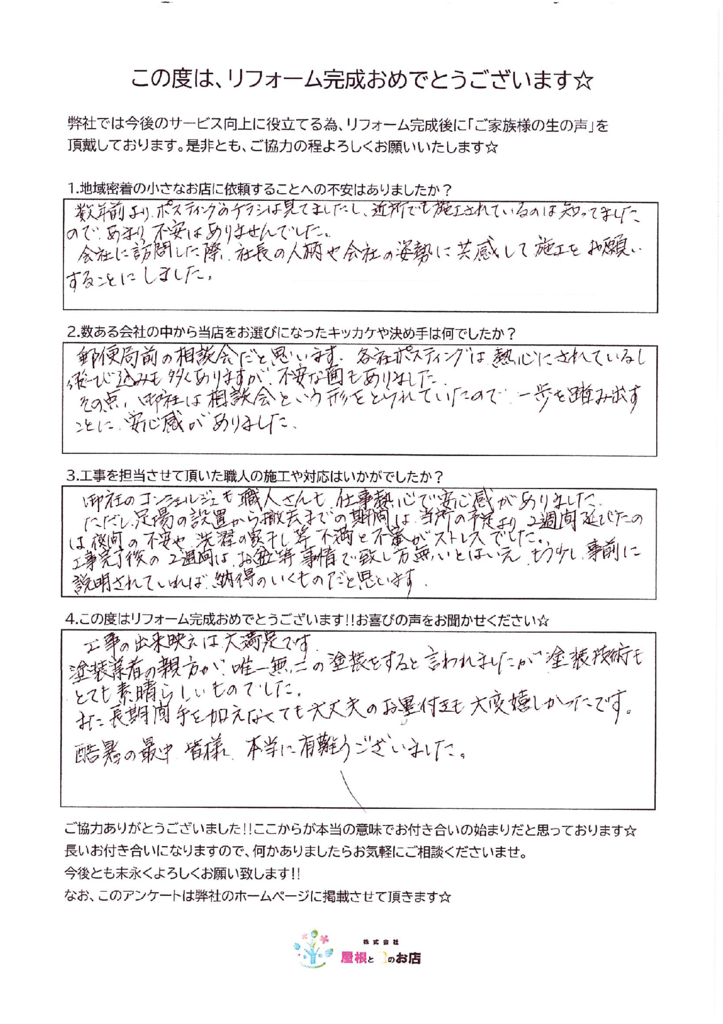 この度は、リフォーム完成おめでとうございます☆
弊社では今後のサービス向上に役立てる為、リフォーム完成後に「ご家族様の生の声」を
頂戴しております。是非とも、ご協力の程よろしくお願いいたします☆
1.地域密着の小さなお店に依頼することへの不安はありましたか？
数年前よりポスティングのチラシは見てましたし、近所でも施工されているのは知ってました
ので、あまり不安はありませんでした。
会社に訪問した際、社長の人柄や会社の姿勢に共感して施工をお願い
することにしました。
2.数ある会社の中から当店をお選びになったキッカケや決め手は何でしたか？
郵便局前の相談会だと思います。各社ポスティングは熱心にされているし
飛び込みも多くありますが、不安な面もありました。
その点、御社は相談会という形をとられていたので、一歩を踏み出す
ことに安心感がありました。
3.工事を担当させて頂いた職人の施工や対応はいかがでしたか？
御社のコンシェルジュも職人さんも、仕事熱心で安心感がありました。
ただし、足場の設置から撤去までの期間は、当初の予定より、2週間延びたの
は夜間の不安や、洗濯の実干し等、不満と不審がストレスでした。
工事完了後の2週間は、お盆等事情で致し方無いとはいえ、もう少し事前に
説明されていれば、納得のいくものだと思います。
4.この度はリフォーム完成おめでとうございます!!お喜びの声をお聞かせください☆
工事の出来映えは大満足です。
塗装業者の親方が、唯一無二の塗装をすると言われましたが、塗装技術も
とても素晴らしいものでした。
また長期間手を加えなくても大丈夫のお墨付きも大変嬉しかったです。
酷暑の最中、皆様、本当に有難うございました。
ご協力ありがとうございました!!ここからが本当の意味でお付き合いの始まりだと思っております☆
長いお付き合いになりますので、何かありましたらお気軽にご相談くださいませ。
今後とも末永くよろしくお願い致します!!
なお、このアンケートは弊社のホームページに掲載させて頂きます☆
株式会社
屋根と のお店